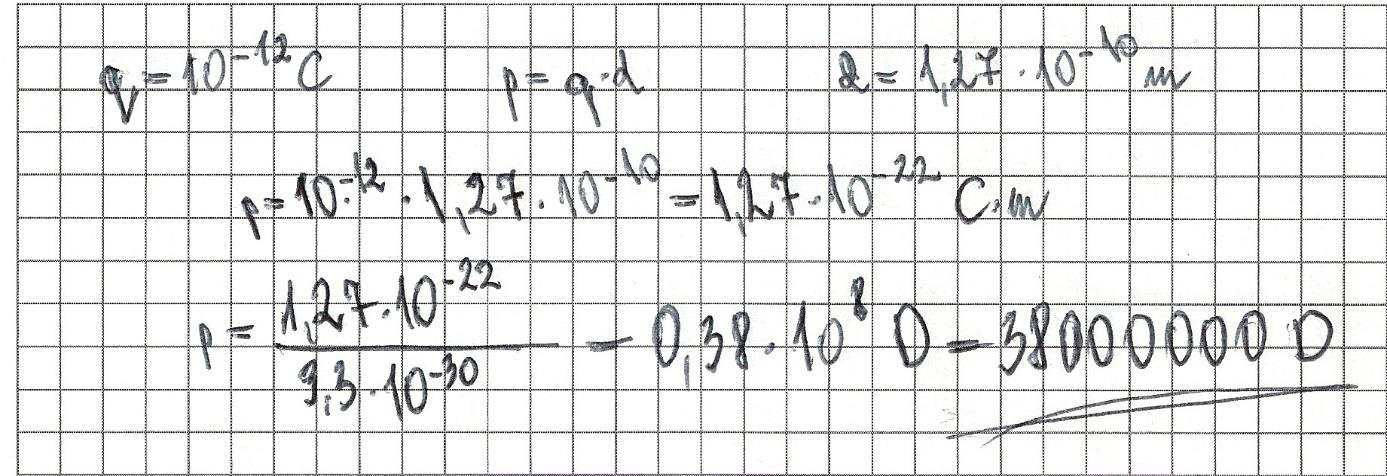 q = 10⁻¹² C p = q·d d = 1,27 · 10⁻¹⁰ m
p = 10⁻¹² · 1,27 · 10⁻¹⁰ = 1,27 · 10⁻²² C·m
p = 1,27 · 10⁻²² / 3,3 · 10⁻³⁰ = 0,38 · 10⁸ D = 38000000 D